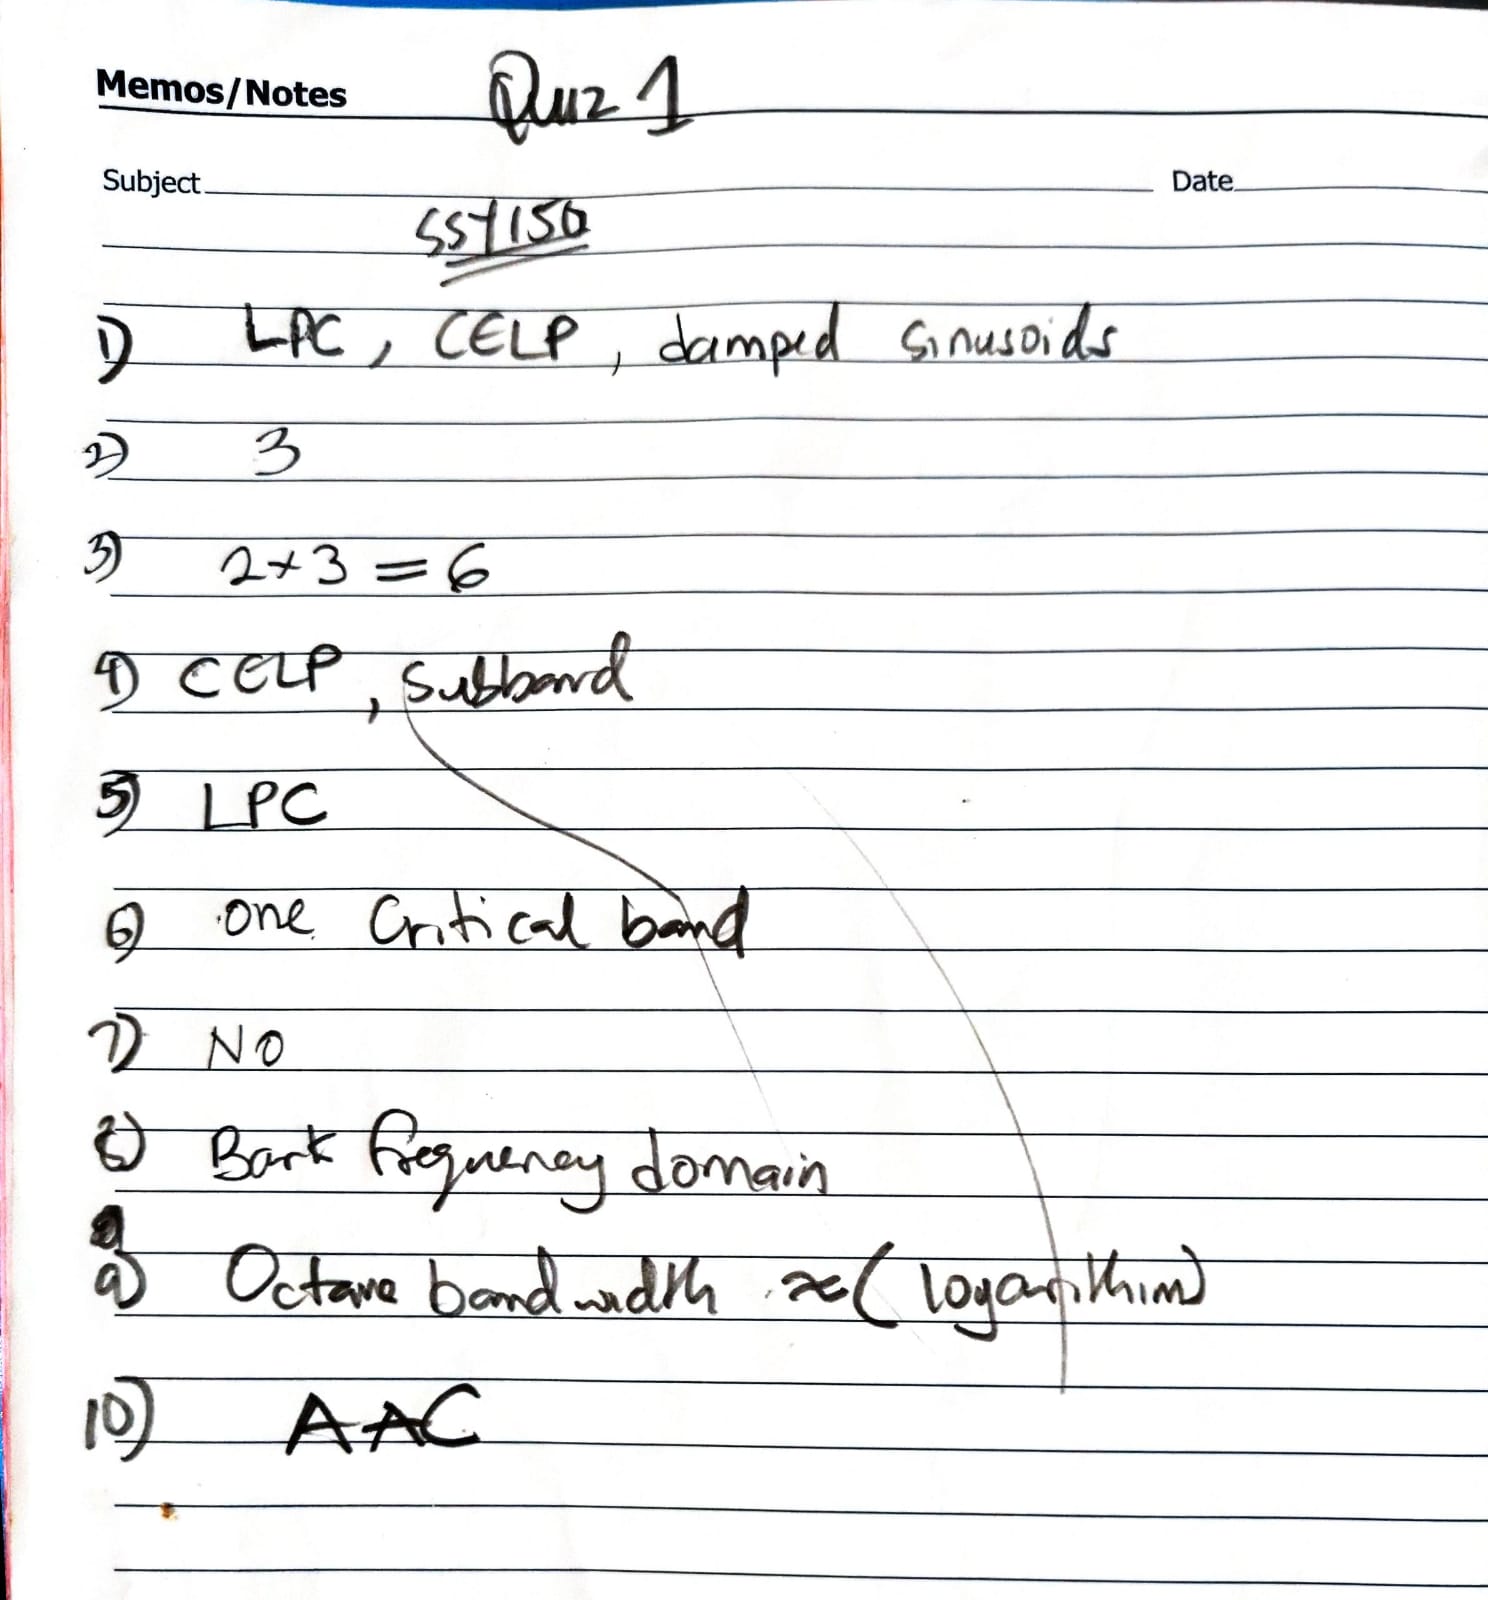 Memos/Notes Quiz 1
Subject Date
SSY150
1) LPC, CELP, damped sinusoids
2) 3
3) 2x3 = 6
4) CELP, Subband
5) LPC
6) one Critical band
7) NO
8) Bark frequency domain
9) Octave bandwidth ≈ (logarithim)
10) AAC